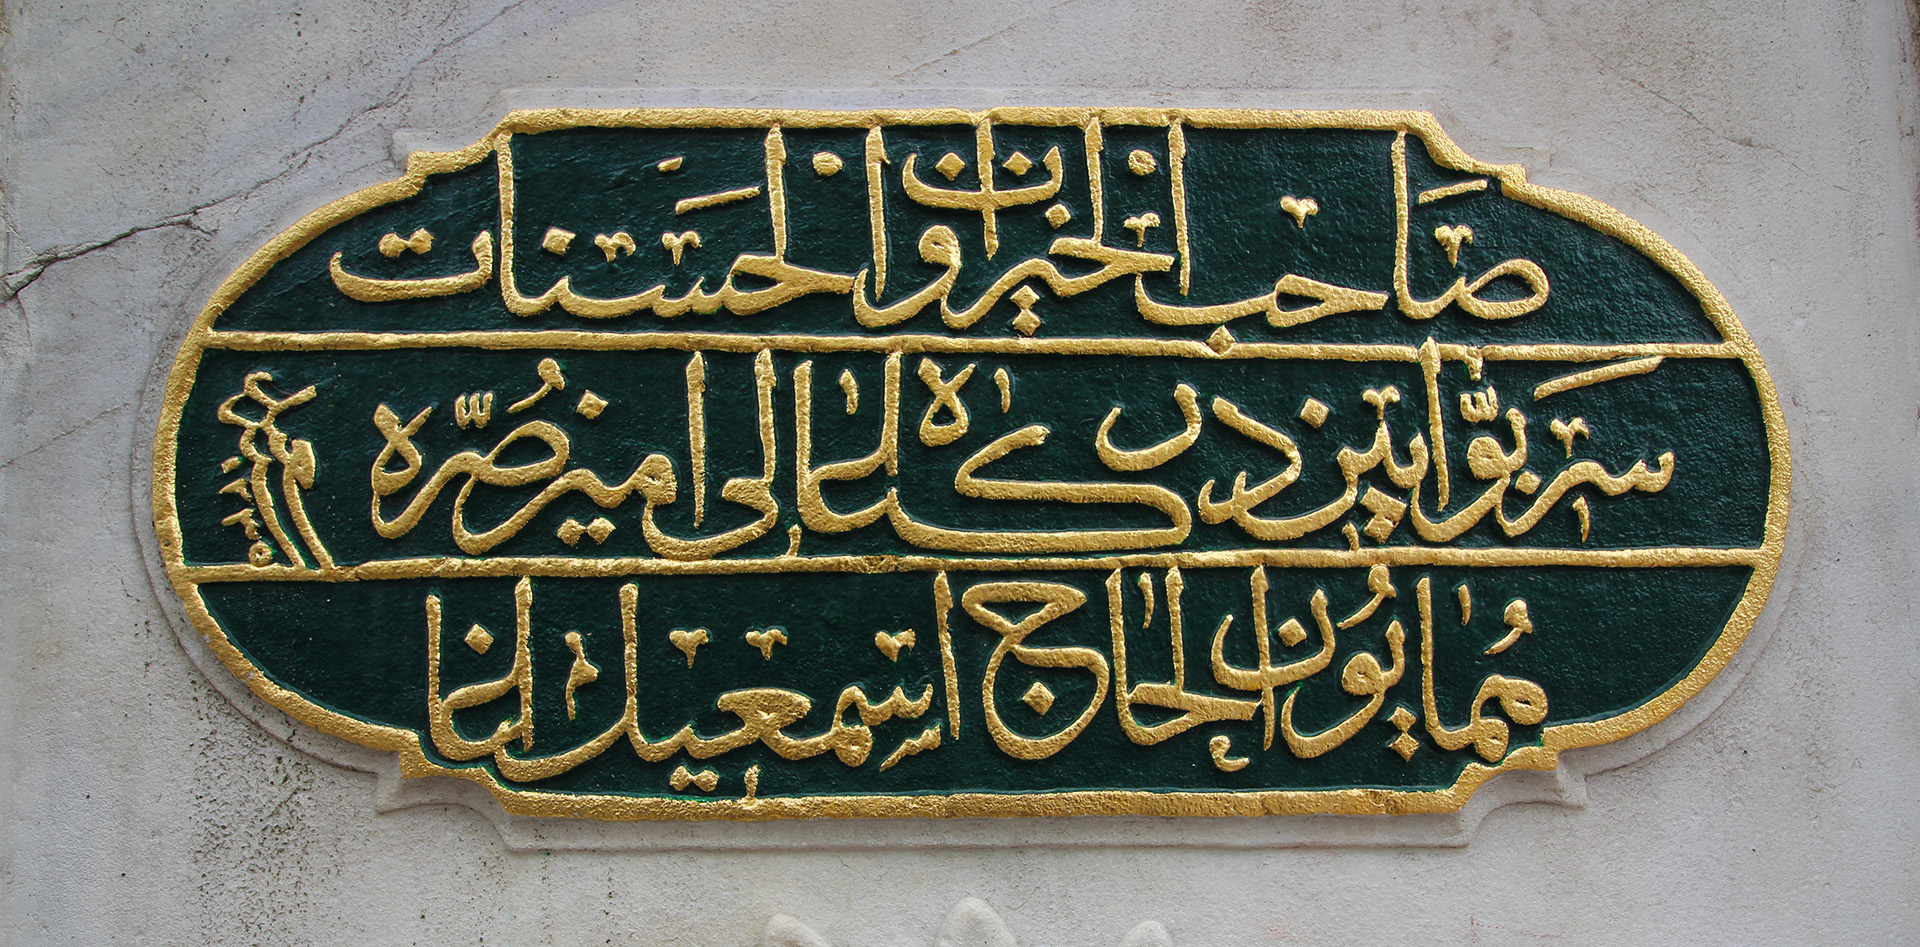 صاحب الخيرات والحسنات
سر بوابين دركاه عالى امين صره
همايون الحاج اسمعيل اغا